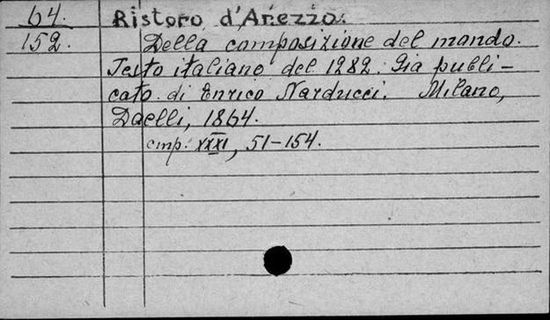 64.
152.
Ristoro d'Arezzo.
Della composizione del mondo.
Testo italiano del 1282. Gia publi-
cato di Enrico Narducci. Milano,
Daelli, 1864.
стр. XXXI, 51-154.